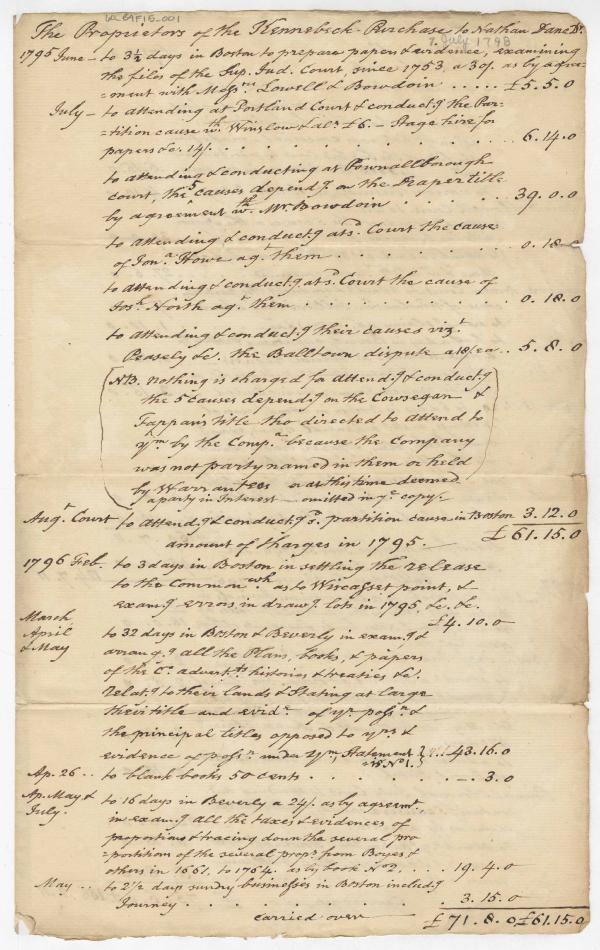 60_G4F15_001
The Proprietors of the Kennebeck-Purchase to Nathan Dane Dr.
7. July 1798
1795 June - to 3½ days in Boston to prepare papers & evidence, examining
the files of the Sup. Jud. Court, since 1753, a 30/. as by agree-
=ment with Messrs. Lowell & Bowdoin ..... £5.5.0
July - to attending at Portland Court & conductg. the Par-
=tition cause wth. Winslow & als. £6. - Stage hire for
papers &c. 14/. . . . . . . . . 6.14.0
to attending & conducting at Pownallborough
court, the 5 causes dependg. on the Draper title
by agreement wth. Mr. Bowdoin . . . . . 39.0.0
to attending & conductg. at sd. Court the cause
of Jona. Howe agt. them . . . . . . . 0.18.0
to attending & conductg. at sd. Court the cause of
Josh. North agt. them . . . . . . . . 0.18.0
to attending & conductg. their causes vizt.
Peasely &c. the Balltown dispute a 18/. ea .. 5.8.0
(NB. nothing is charged for attendg. & conductg.
the 5 causes dependg. on the Cowsegan &
Tappan's title tho directed to attend to
ym. by the Compa. because the Company
was not party named in them or held
by Warrantees or at this time deemed
a party in Interest - omitted in ye. copy.
Augt. Court to attendg. & conductg. sd. partition cause in Boston 3.12.0
amount of Charges in 1795. - £61.15.0
1796 Feb. to 3 days in Boston in settling the release
to the Commonwth. as to Wiscasset point, &
examg. errors in drawg. lots in 1795, &c. &c.
£4.10.0
March
April
& May
to 32 days in Boston & Beverly in examg. &
arrang.g all the Plans, books, & papers
of the Co. advertts. histories & treaties &c.
relatg. to their lands & Stating at large
their title and evide. of yr. possn. &
the principal titles opposed to yrs. &
evidence of possn. under ym, Statement
No. 1. } .. 43.16.0
Ap. 26 .. to blank books 50 cents . . . . . . . -. 3.0
Ap. May &
July.
to 16 days in Beverly a 24/. as by agreemt.,
in examg. all the taxes & evidences of
proportions & tracing down the several pro
=portions of the several props. from Boyes &
others in 1661. to 1764. as by book No. 2. .... 19.4.0
May .. to 2½ days sundry businesses in Boston includg.
Journey . . . . . . . . . . 3.15.0
carried over - £71.8.0 £61.15.0